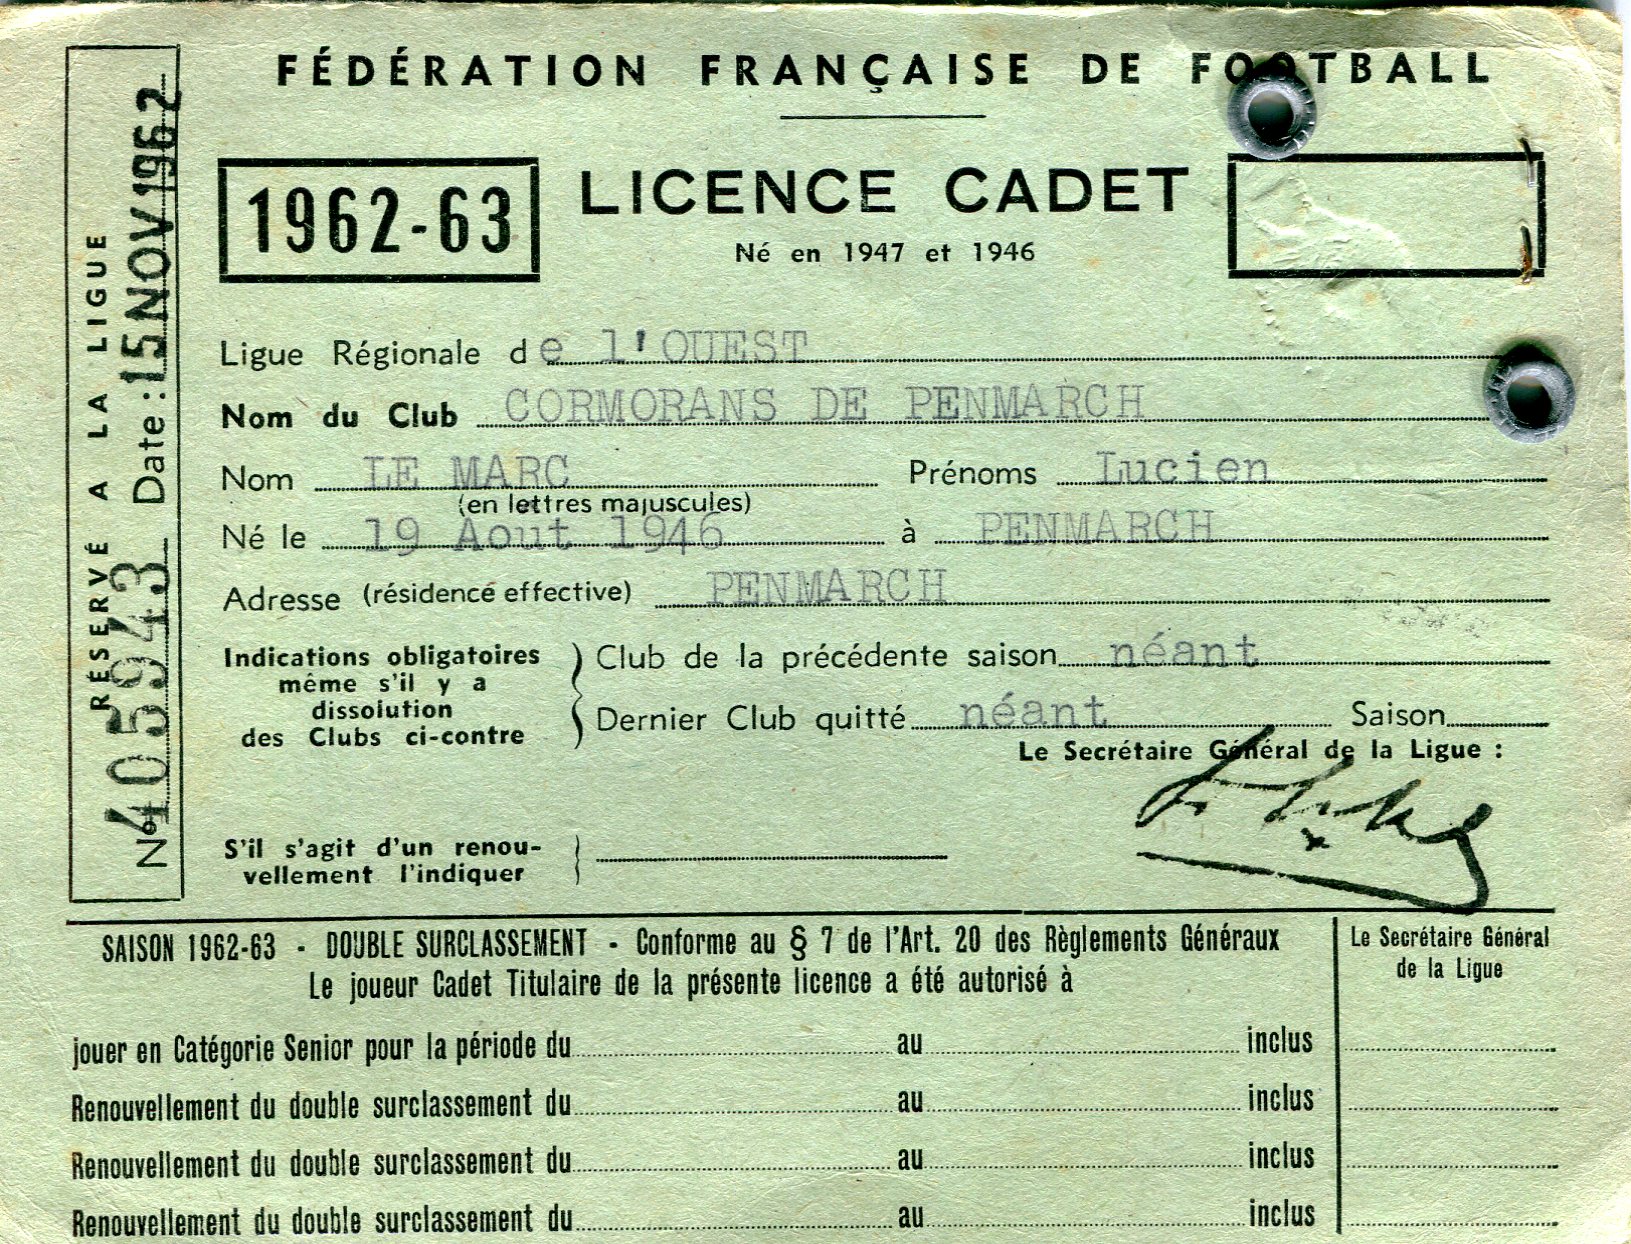 FÉDÉRATION FRANÇAISE DE FOOTBALL
1962-63
LICENCE CADET
Né en 1947 et 1946
RÉSERVÉ A LA LIGUE
N° 405943 Date : 15 NOV 1962
Ligue Régionale de l'OUEST
Nom du Club CORMORANS DE PENMARCH
Nom LE MARC Prénoms Lucien
(en lettres majuscules)
Né le 19 Aout 1946 à PENMARCH
Adresse (résidence effective) PENMARCH
Indications obligatoires
même s'il y a
dissolution
des Clubs ci-contre
Club de la précédente saison néant
Dernier Club quitté néant Saison
Le Secrétaire Général de la Ligue :
S'il s'agit d'un renou-
vellement l'indiquer
SAISON 1962-63 - DOUBLE SURCLASSEMENT - Conforme au § 7 de l'Art. 20 des Règlements Généraux
Le joueur Cadet Titulaire de la présente licence a été autorisé à
Le Secrétaire Général
de la Ligue
jouer en Catégorie Senior pour la période du au inclus
Renouvellement du double surclassement du au inclus
Renouvellement du double surclassement du au inclus
Renouvellement du double surclassement du au inclus